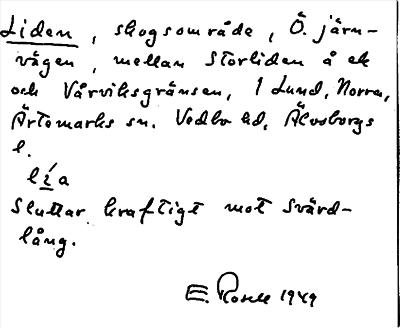 Liden, skogsområde, Ö. järn-
vägen, mellan Storliden å ek
och Vårviksgränsen, 1 Lund, Norra,
Ärtemarks sn. Vedbo hd, Älvsborgs
l.
lia
Sluttar kraftigt mot Svärd-
lång.
E. 1949